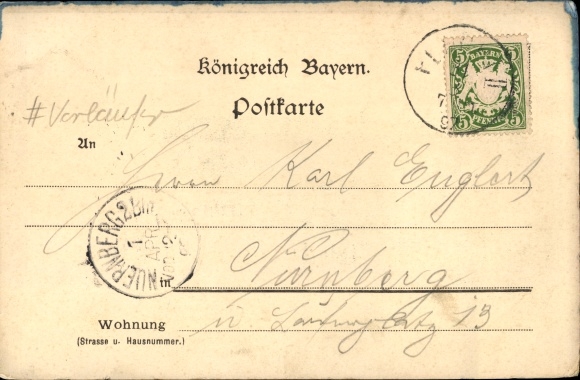 Königreich Bayern.
Postkarte
BAYERN
5 5
5 5
PFENNIG
#Vorläufer
An
Herrn Karl Englert
NUERNBERG 2 BHF
1
APR
in Nürnberg
Wohnung
(Strasse u. Hausnummer.)
13